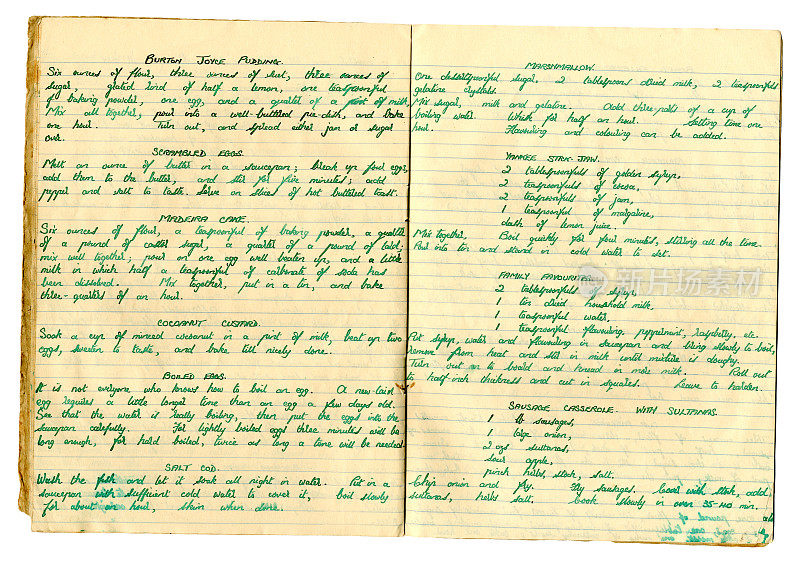 BURTON JOYCE PUDDING.
Six ounces of flour, three ounces of suet, three ounces of
sugar, grated rind of half a lemon, one teaspoonful
of baking powder, one egg, and a quarter of a pint of milk.
Mix all together, pour into a well-buttered pie-dish, and bake
one hour. Turn out, and spread either jam or sugar
over.
SCRAMBLED EGGS.
Melt an ounce of butter in a saucepan; break up four eggs,
add them to the butter, and stir for five minutes; add
pepper and salt to taste. Serve on slices of hot buttered toast.
MADEIRA CAKE.
Six ounces of flour, a teaspoonful of baking powder, a quarter
of a pound of castor sugar, a quarter of a pound of lard;
mix well together; pour on one egg well beaten up, and a little
milk in which half a teaspoonful of carbonate of soda has
been dissolved. Mix together, put in a tin, and bake
three-quarters of an hour.
COCOANUT CUSTARD.
Soak a cup of minced cocoanut in a pint of milk, beat up two
eggs, sweeten to taste, and bake till nicely done.
BOILED EGGS.
It is not everyone who knows how to boil an egg. A new-laid
egg requires a little longer time than an egg a few days old.
See that the water is really boiling, then put the eggs into the
saucepan carefully. For lightly boiled eggs three minutes will be
long enough, for hard boiled, twice as long a time will be needed.
SALT COD.
Wash the fish and let it soak all night in water. Put in a
saucepan with sufficient cold water to cover it, boil slowly
for about an hour, skin when done.
MARSHMALLOW.
One dessertspoonful sugar, 2 tablespoons dried milk, 2 teaspoonfuls
gelatine crystals.
Mix sugar, milk and gelatine. Add three-parts of a cup of
boiling water. Whisk for half an hour. Setting time one
hour. Flavouring and colouring can be added.
YANKEE STICK JAW.
2 tablespoonfuls of golden syrup,
2 teaspoonfuls of cocoa,
2 teaspoonfuls of jam,
1 teaspoonful of margarine,
dash of lemon juice.
Mix together, Boil quickly for four minutes, stirring all the time.
Pour into tin and stand in cold water to set.
FAMILY FAVOURITE.
2 tablespoonfuls of syrup,
1 tin dried household milk,
1 teaspoonful water,
1 teaspoonful flavouring peppermint, raspberry. etc
Put syrup, water and flavouring in saucepan and bring slowly to boil,
remove from heat and stir in milk until mixture is doughy.
Turn out on to board and knead in more milk. Roll out
to half-inch thickness and cut in squares. Leave to harden.
SAUSAGE CASSEROLE WITH SULTANAS.
1 lb sausages,
1 large onion,
2 ozs sultanas,
sour apple,
pinch herbs, stock, salt.
Chip onion and fry. Fry sausages. Cover with stock, add
sultanas, herbs salt. Cook slowly in oven 35-40 min.